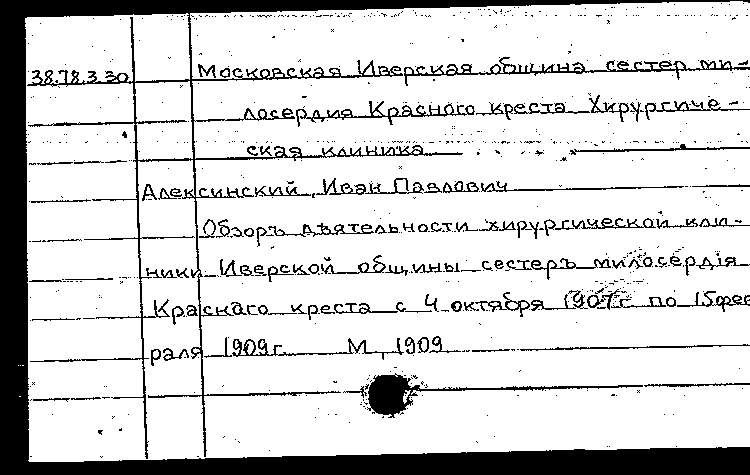 38.78.3.30 Московская Иверская община сестер ми-
лосердия Красного креста Хирургиче-
ская клиника
Алексинский, Иван Павлович
Обзоръ дѣятельности хирургической кли-
ники Иверской общины сестеръ милосердія
Краснаго креста с 4 октября 1907г по 15 фев
раля 1909г. М., 1909